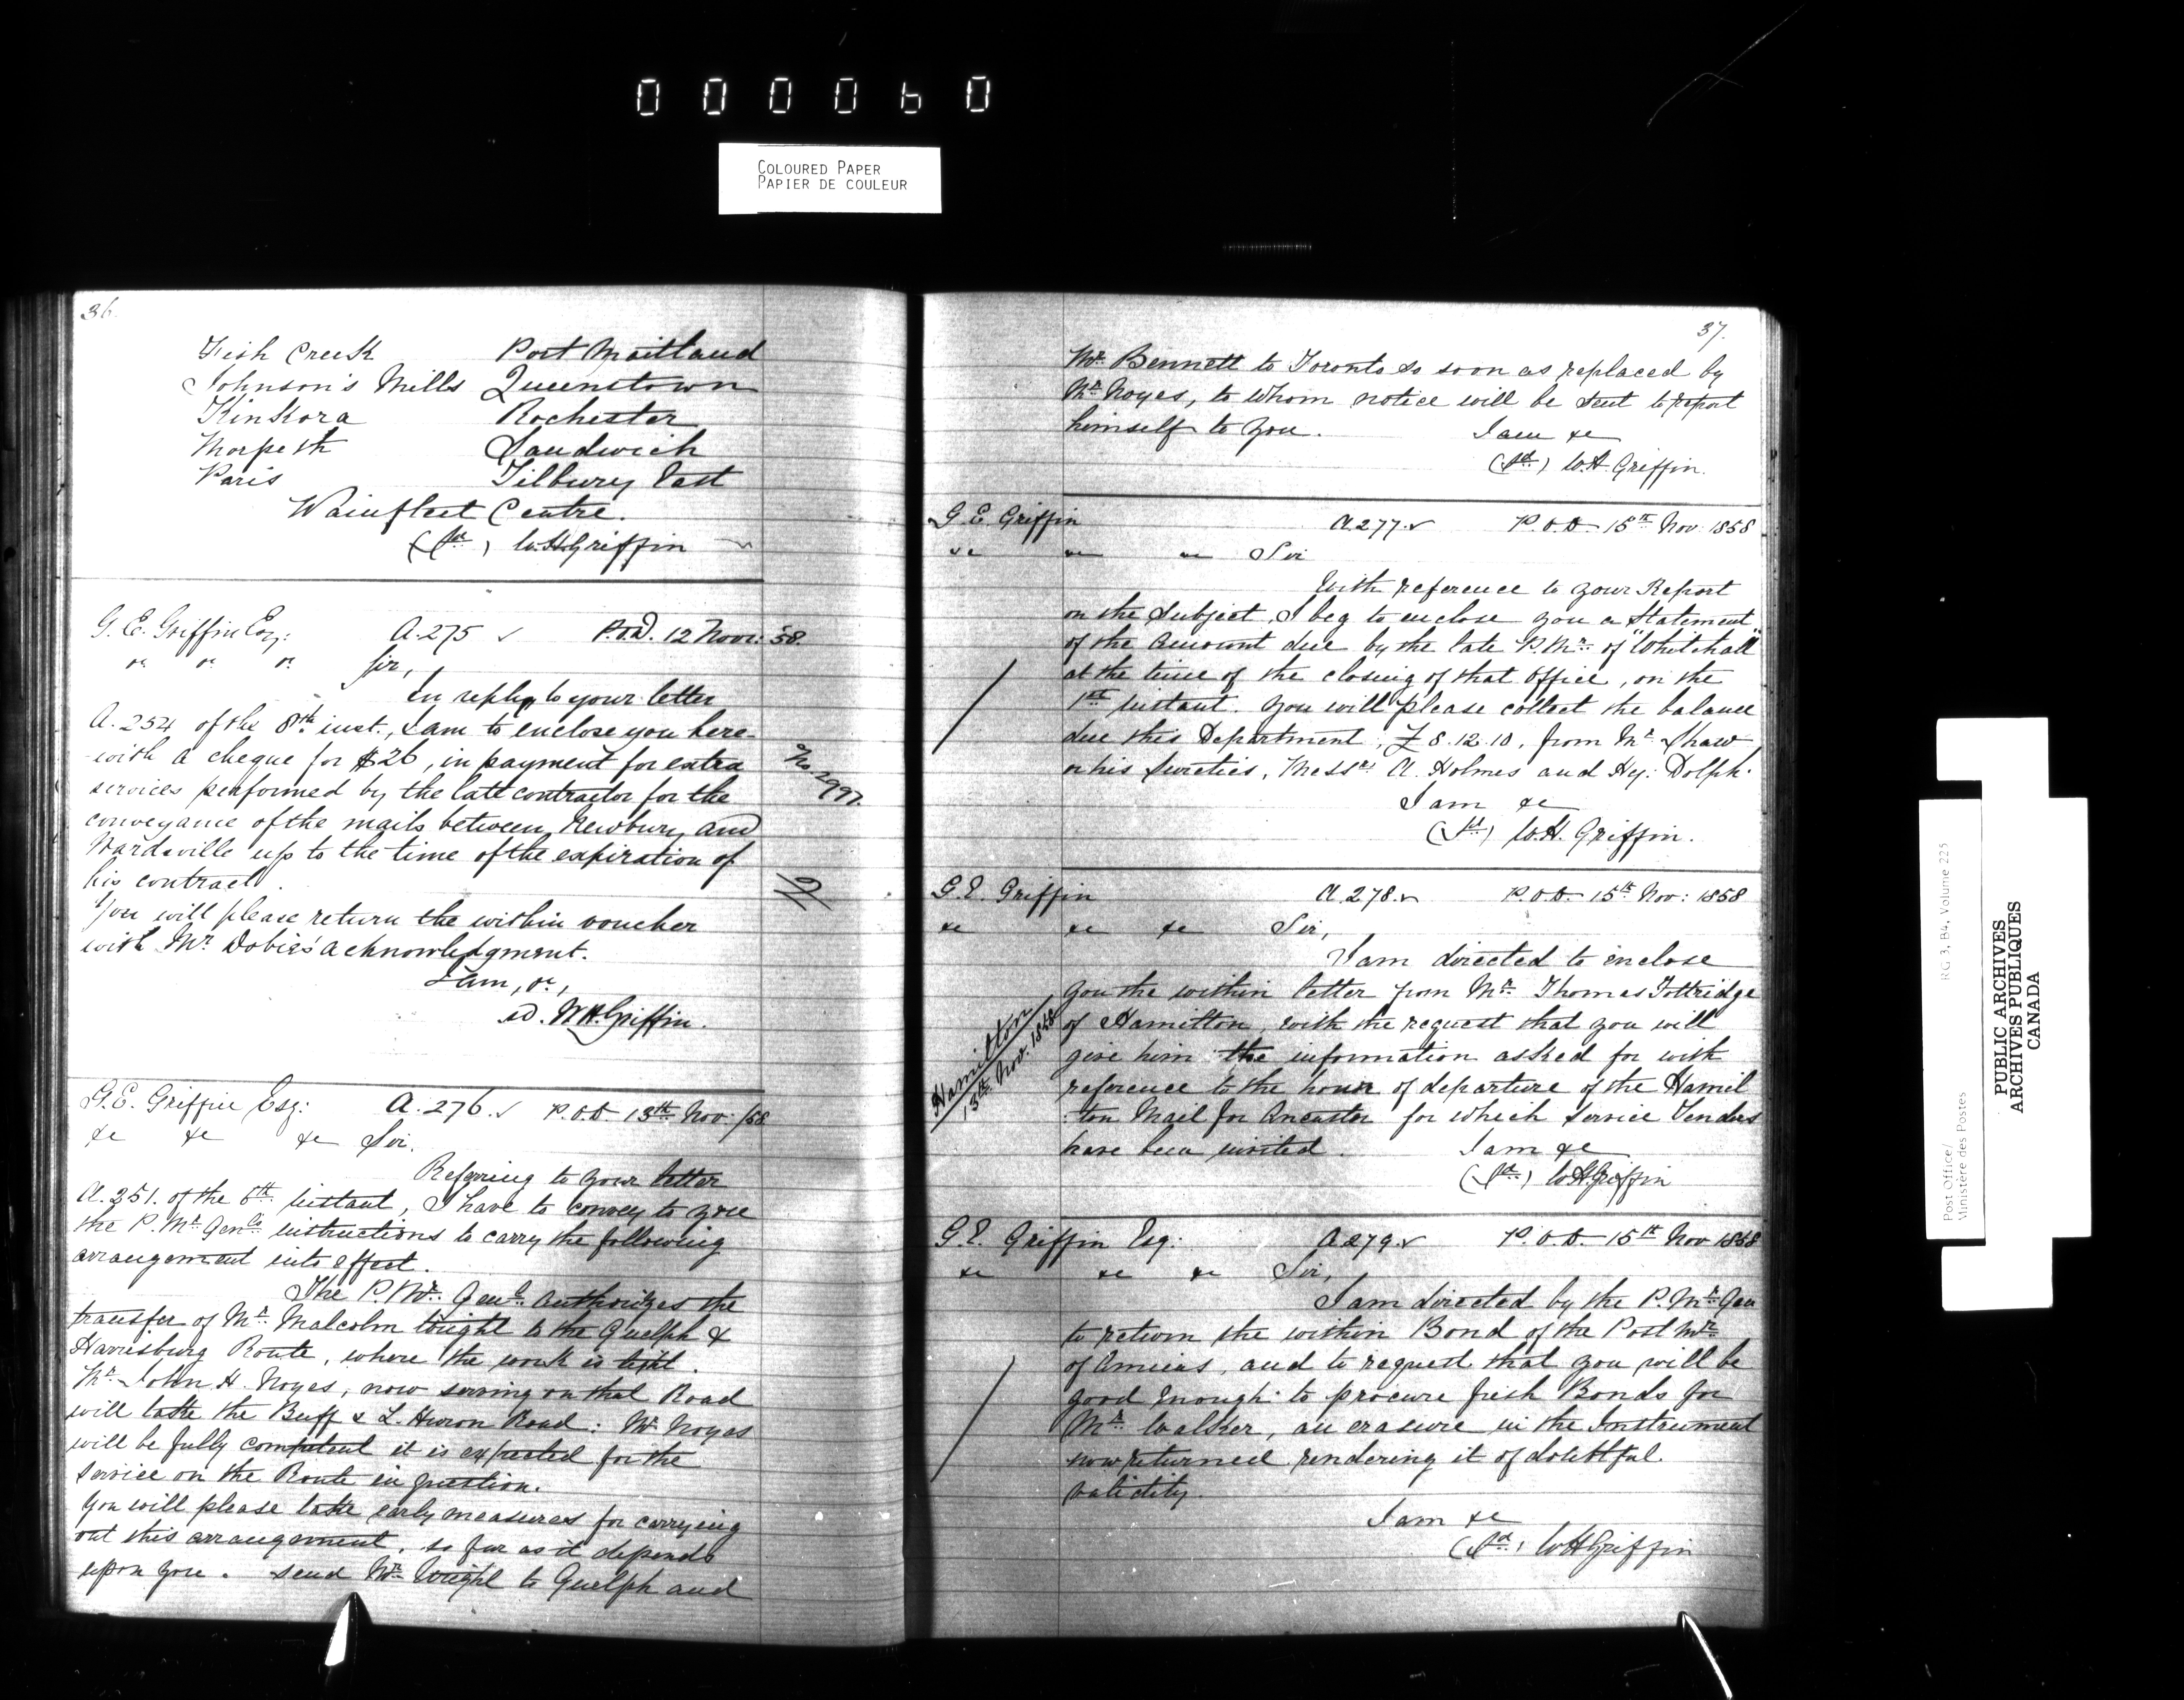 000060
COLOURED PAPER
PAPIER DE COULEUR
36.
Fish Creek Port Maitland
Johnson's Mills Queenstown
Kinkora Rochester
Morpeth Sandwich
Paris Tilbury East
Wainfleet Centre.
(sd) W.H. Griffin
G. E. Griffin Esq: A. 275 ✓ P.O.D. 12 Novr: 58.
&c &c &c Sir,
In reply to your letter
A. 254 of the 8th inst., I am to enclose you here-
-with a cheque for $26, in payment for extra
services performed by the late contractor for the
conveyance of the mails between Newbury and
Wardsville up to the time of the expiration of
his contract.
You will please return the within voucher
with Mr Dobie's acknowledgment.
I am, &c,
sd. W.H. Griffin.
No. 2997.
G.E. Griffin Esq: A. 276 ✓ P.O.D 13th Nov: /58
&c &c &c Sir,
Referring to your letter
A. 251. of the 6th instant, I have to convey to you
the P. Mr. Genls instructions to carry the following
arrangement into effect.
The P. Mr. Genl. authorizes the
transfer of Mr. Malcolm Wright to the Guelph &
Harrisburg Route, where the work is light.
Mr. John H. Noyes, now serving on that Road
will take the Buff & L. Huron Road: Mr Noyes
will be fully competent it is expected for the
service on the Route in question.
You will please take early measures for carrying
out this arrangement, so far as it depends
upon you. Send Mr. Wright to Guelph and
37.
Mr. Bennett to Toronto so soon as replaced by
Mr. Noyes, to whom notice will be sent to report
himself to you. I am &c
(sd) W.H. Griffin.
G E Griffin A. 277 ✓ P.O.D. 15th Nov 1858
&c &c &c Sir
With reference to your Report
on the subject, I beg to enclose you a Statement
of the amount due by the late P. Mr. of "Whitehall"
at the time of the closing of that office, on the
1st instant. You will please collect the balance
due this Department, £8.12.10, from Mr Shaw
or his Sureties, Messrs A. Holmes and Hy: Dolph.
I am &c
(sd) W.H. Griffin.
G.E. Griffin A. 278 ✓ P.O.D. 15th Nov: 1858
&c &c &c Sir,
I am directed to enclose
you the within letter from Mr. Thomas Tottridge
of Hamilton, with the request that you will
give him the information asked for with
reference to the hour of departure of the Hamil
-ton Mail for Ancaster for which service Tenders
have been invited. I am &c
(sd) W.H. Griffin
Hamilton
13th Nov. 1858
G.E. Griffin Esq: A 279 ✓ P.O.D. 15th Nov 1858
&c &c &c Sir,
I am directed by the P. Mr. Gen
to return the within Bond of the Post Mr.
of Amiens, and to request that you will be
good enough to procure fresh Bonds for
Mr. Walker, an erasure in the Instrument
now returned rendering it of doubtful
validity.
I am &c
(sd) W H Griffin
Post Office/
Ministère des Postes
RG 3, B4, Volume 225
PUBLIC ARCHIVES
ARCHIVES PUBLIQUES
CANADA